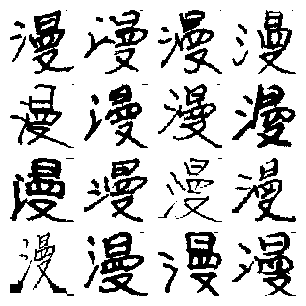 漫漫漫漫
漫漫漫漫
漫漫漫漫
漫漫漫漫